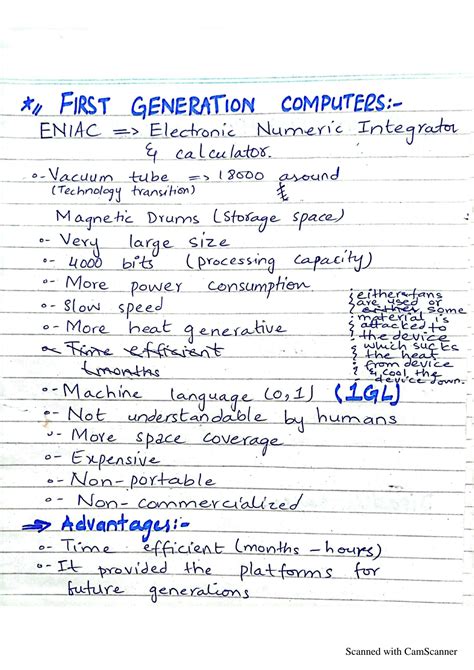 *11 FIRST GENERATION COMPUTERS:-
ENIAC => Electronic Numeric Integrator
& calculator.
o- Vacuum tube => 18000 around
(Technology transition)
Magnetic Drums (storage space)
o- Very large size
o- 4000 bits (processing capacity)
o- More power consumption
o- Slow speed
o- More heat generative
either fans
are used or
either some
material is
attacked to
the device
which sucks
the heat
from device
& cool the
device down.
o- Time efficient
(months
o- Machine language (0,1) (1GL)
o- Not understandable by humans
o- More space coverage
o- Expensive
o- Non-portable
o- Non-commercialized
=> Advantages:-
o- Time efficient (months - hours)
o- It provided the platforms for
future generations
Scanned with CamScanner